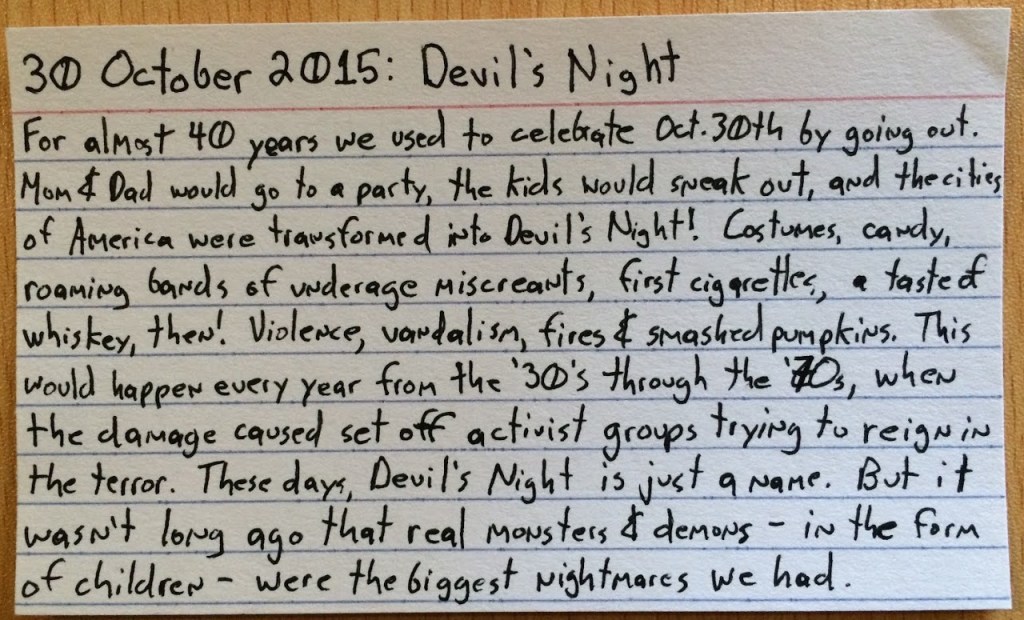 30 October 2015: Devil's Night
For almost 40 years we used to celebrate Oct. 30th by going out.
Mom & Dad would go to a party, the kids would sneak out, and the cities
of America were transformed into Devil's Night! Costumes, candy,
roaming bands of underage miscreants, first cigarettes, a taste of
whiskey, then! Violence, vandalism, fires & smashed pumpkins. This
would happen every year from the '30's through the '70s, when
the damage caused set off activist groups trying to reign in
the terror. These days, Devil's Night is just a name. But it
wasn't long ago that real monsters & demons - in the form
of children - were the biggest nightmares we had.